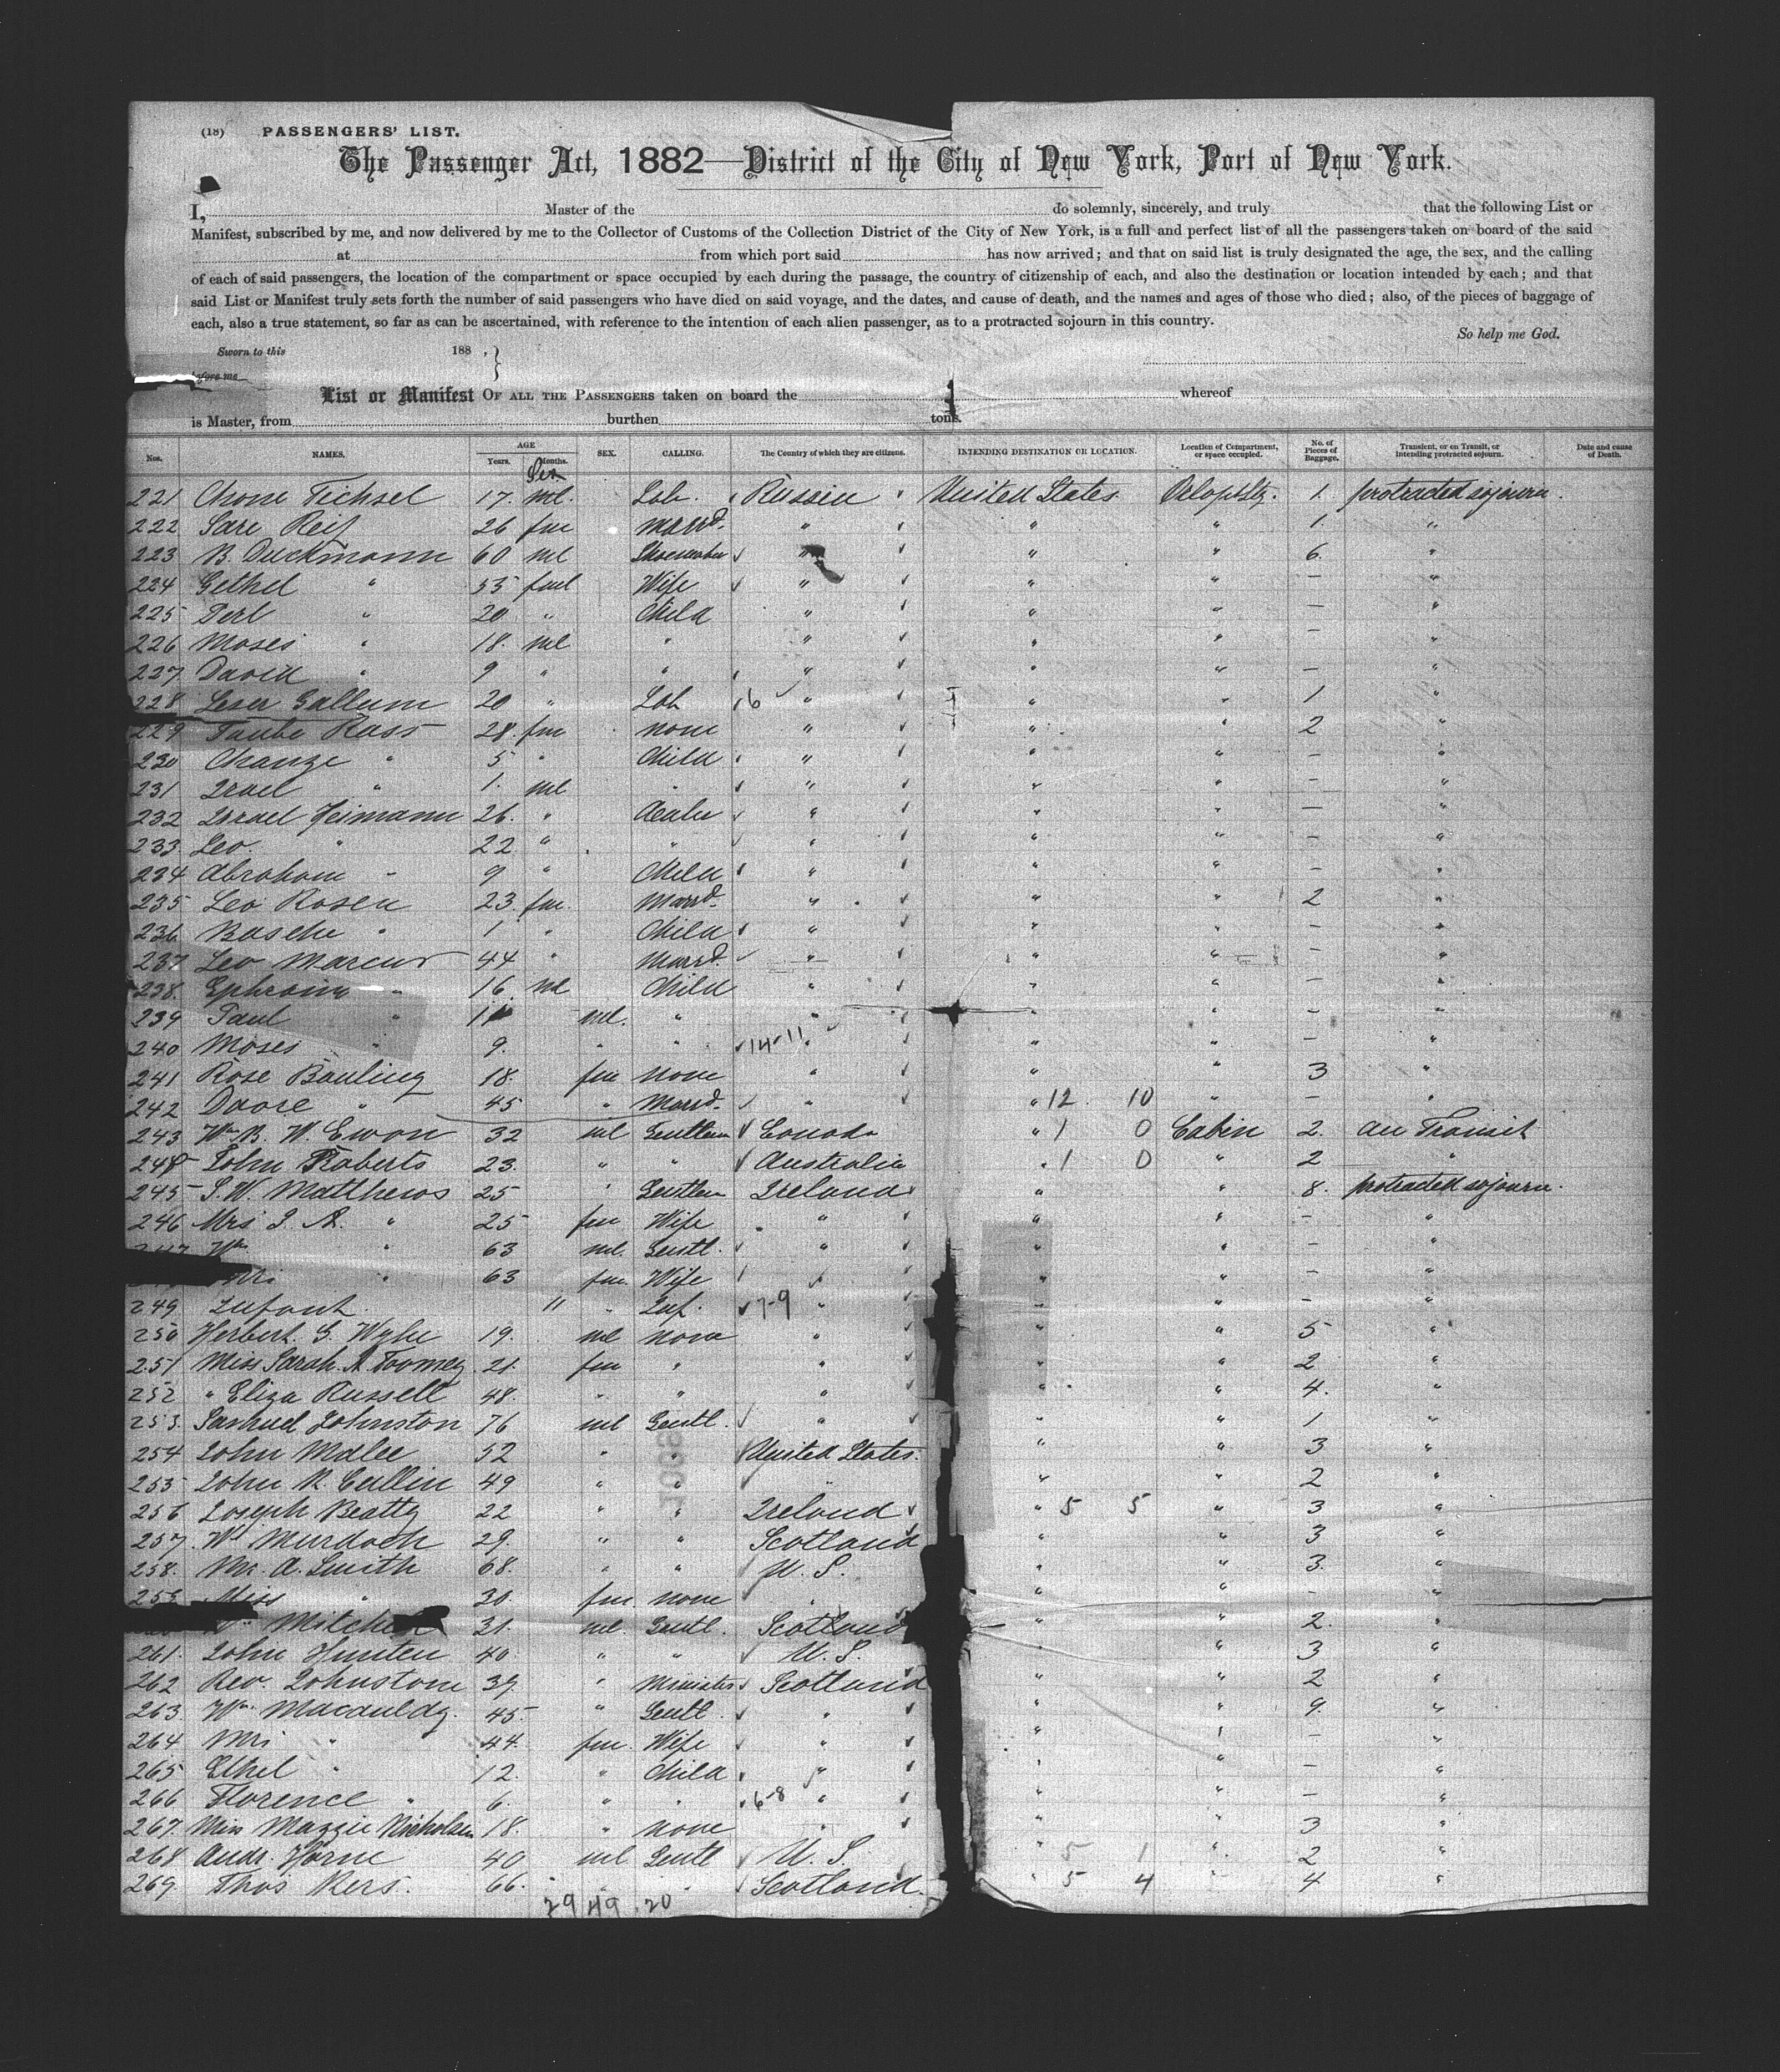 (18) PASSENGERS' LIST.
The Passenger Act, 1882—District of the City of New York, Port of New York.
I, Master of the do solemnly, sincerely, and truly that the following List or
Manifest, subscribed by me, and now delivered by me to the Collector of Customs of the Collection District of the City of New York, is a full and perfect list of all the passengers taken on board of the said
at from which port said has now arrived; and that on said list is truly designated the age, the sex, and the calling
of each of said passengers, the location of the compartment or space occupied by each during the passage, the country of citizenship of each, and also the destination or location intended by each; and that
said List or Manifest truly sets forth the number of said passengers who have died on said voyage, and the dates, and cause of death, and the names and ages of those who died; also, of the pieces of baggage of
each, also a true statement, so far as can be ascertained, with reference to the intention of each alien passenger, as to a protracted sojourn in this country.
So help me God.
Sworn to this 188 ,
before me
List or Manifest OF ALL THE PASSENGERS taken on board the whereof
is Master, from burthen tons.
Nos. NAMES. AGE Years. Months. SEX. CALLING. The Country of which they are citizens. INTENDING DESTINATION OR LOCATION. Location of Compartment, or space occupied. No. of Pieces of Baggage. Transient, or on Transit, or intending protracted sojourn. Date and cause of Death.
Sex
221 Chone 17. ml. Lab. Russia United States 1. protracted sojourn.
222 Sare Reif 26 fm Marrd. " " " 1. "
223 B. Duckmann 60 ml Shoemaker " " " 6. "
224 Gethel " 55 fml Wife " " " – "
225 Perl " 20 " Child " " " – "
226 Moses " 18. ml " " " " – "
227 David " 9 " " " " " – "
228 Leser Gallum 20 " Lab 6 " " " 1 "
229 Taube Rass 28. fm none " " " 2 "
230 Chanze " 5 " Child " " " – "
231 Israel " 1. ml " " " " – "
232 Israel Heimann 26. " dealer " " " – "
233. Leo. " 22 " " " " " – "
234 Abraham " 9 " Child " " " – "
235 Leo Rosen 23. fm. Marrd. " " " 2 "
236 Basche " 1 " Child " " " – "
237 Leo Marcus 44 " Marrd. " " " – "
238. Ephraim " 16. ml Child " " " – "
239 Paul " 11 ml. " " " " – "
240 Moses " 9. " " 14-11 " " " – "
241 Rose Bauling 18. fm none " " " 3 "
242 " 45 " Marrd. " " 12 10 " – "
243 Wm B. W. Ewon 32 ml Gentlem Canada " 1 0 Cabin 2. au Transit
244 John Roberts 23. " " Australia " 1 0 " 2 "
245 S. W. Matthews 25 " Gentlem Ireland " " 8. protracted sojourn.
246 Mrs S. A. " 25 fm Wife " " " – "
247 Wm " 63 ml. Gentl. " " " – "
Mrs " 63 fm. Wife " " " – "
249 Infant. 11 " Inf. 7-9 " " " – "
250 Herbert G. Wylie 19. ml none " " " 5 "
251 Miss Sarah A. Toomey 21. fm " " " " 2 "
252 " Eliza Russell 48. " " " " " 4. "
253. Samuel Johnston 76 ml Gentl. " " " 1 "
254 John 52 " " United States. " " 3 "
255 John R. Cullin 49 " " " " " 2 "
256 Joseph Beatty 22 " " Ireland " 5 5 " 3 "
257. Wm Murdoch 29. " " Scotland " " 3 "
258. Mr. A. Smith 68. " " U. S. " " 3. "
259 Miss " 30. fm none " " " – "
Wm Mitchell 31. ml Gentl. Scotland " " 2. "
261. John Hunter 40. " " U. S. " " 3 "
262 Rev. Johnstone 39. " Minister Scotland " " 2 "
263. Wm Macauldy. 45. " Gentl. " " " 9. "
264 Mrs " 44. fm. Wife " " " – "
265 Ethel " 12. " Child " " " – "
266 Florence " 6. " " 6-8 " " " – "
267 Miss Maggie Nicholson 18. " none " " " 3 "
268 Andr. Horne 40 ml Gentl U. S. " 5 1 " 2 "
269. Thos Kers. 66. " " Scotland. " 5 4 " 4 "
29 49 . 20